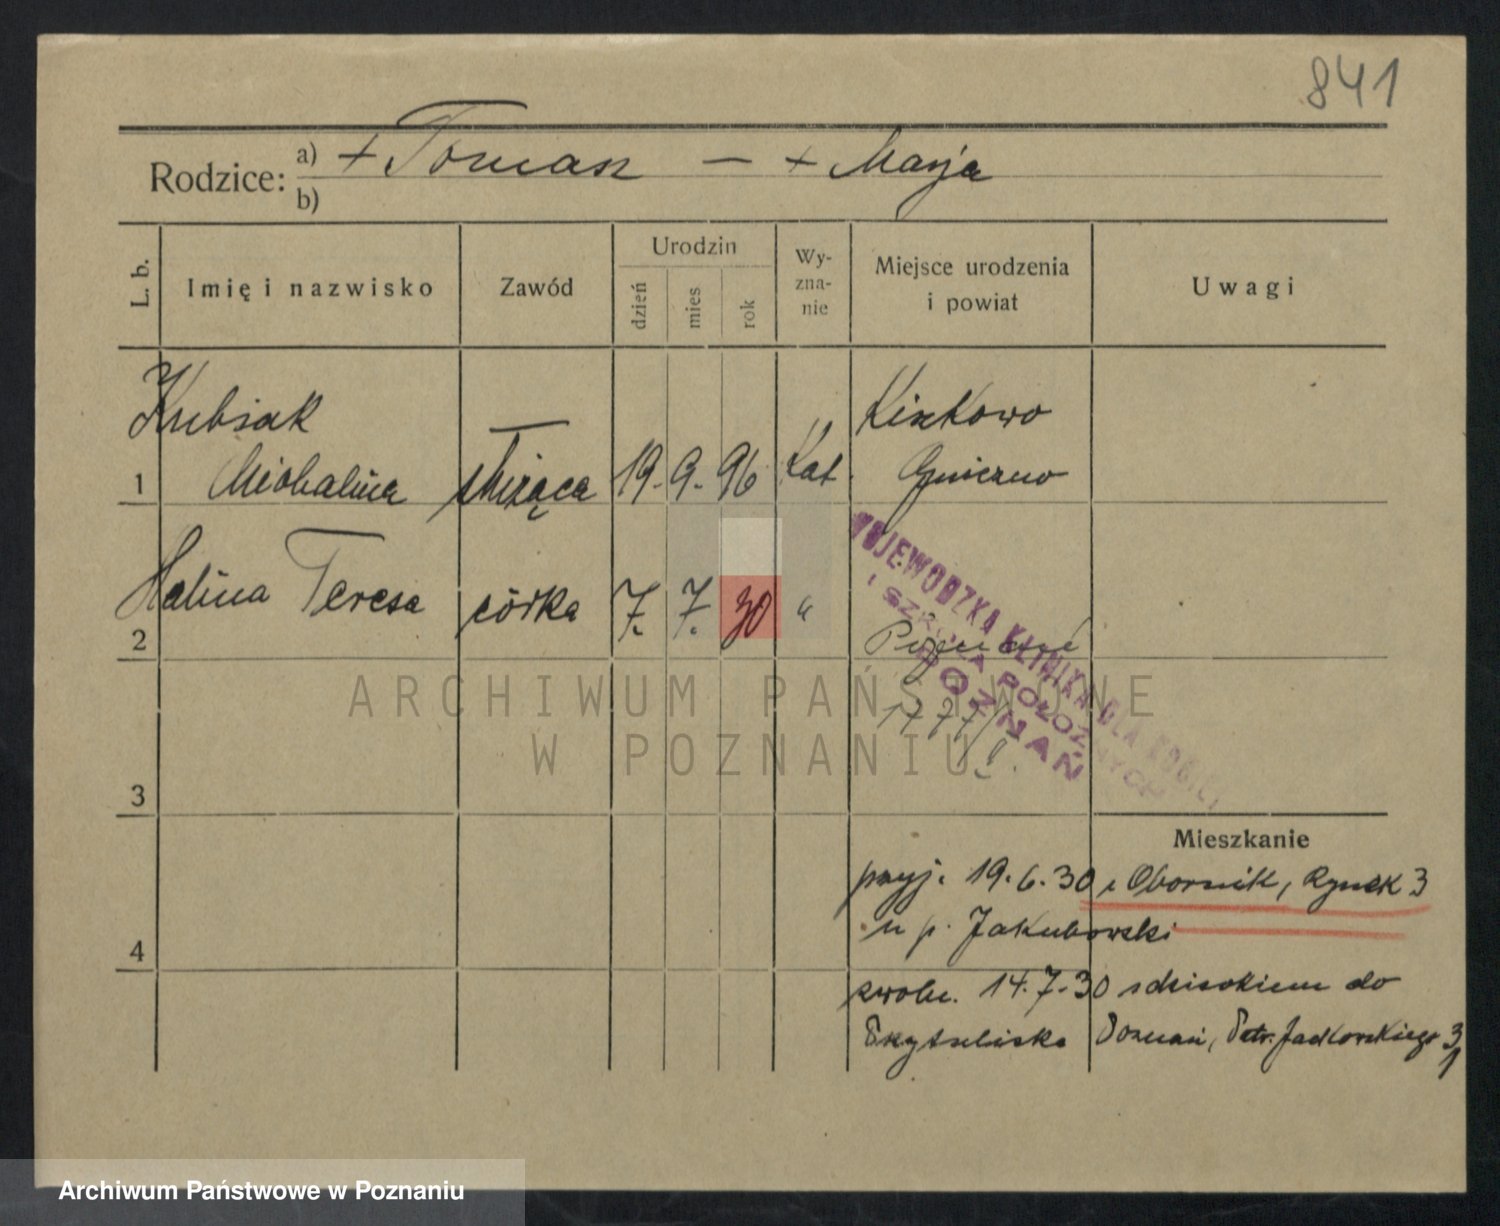 841
Rodzice: a) + Tomasz — + Marja
b)
L. b.
Imię i nazwisko
Zawód
Urodzin
dzień
mies
rok
Wy-
zna-
nie
Miejsce urodzenia
i powiat
Uwagi
Kubiak
Kiszkowo
1 Michalina służąca 19. 9. 96 Kat. Gniezno
Halina Teresa córka 7. 7. 30 "
2 Poznań
WOJEWÓDZKA KLINIKA DLA KOBIET
I SZKOŁA POŁOŻNYCH
POZNAŃ
ARCHIWUM PAŃSTWOWE
W POZNANIU
3
Mieszkanie
przyj. 19.6.30 z Obornik, Rynek 3
4 u p. Jakubowski
zwoln. 14.7.30 z dzieckiem do
Poznań,
Archiwum Państwowe w Poznaniu